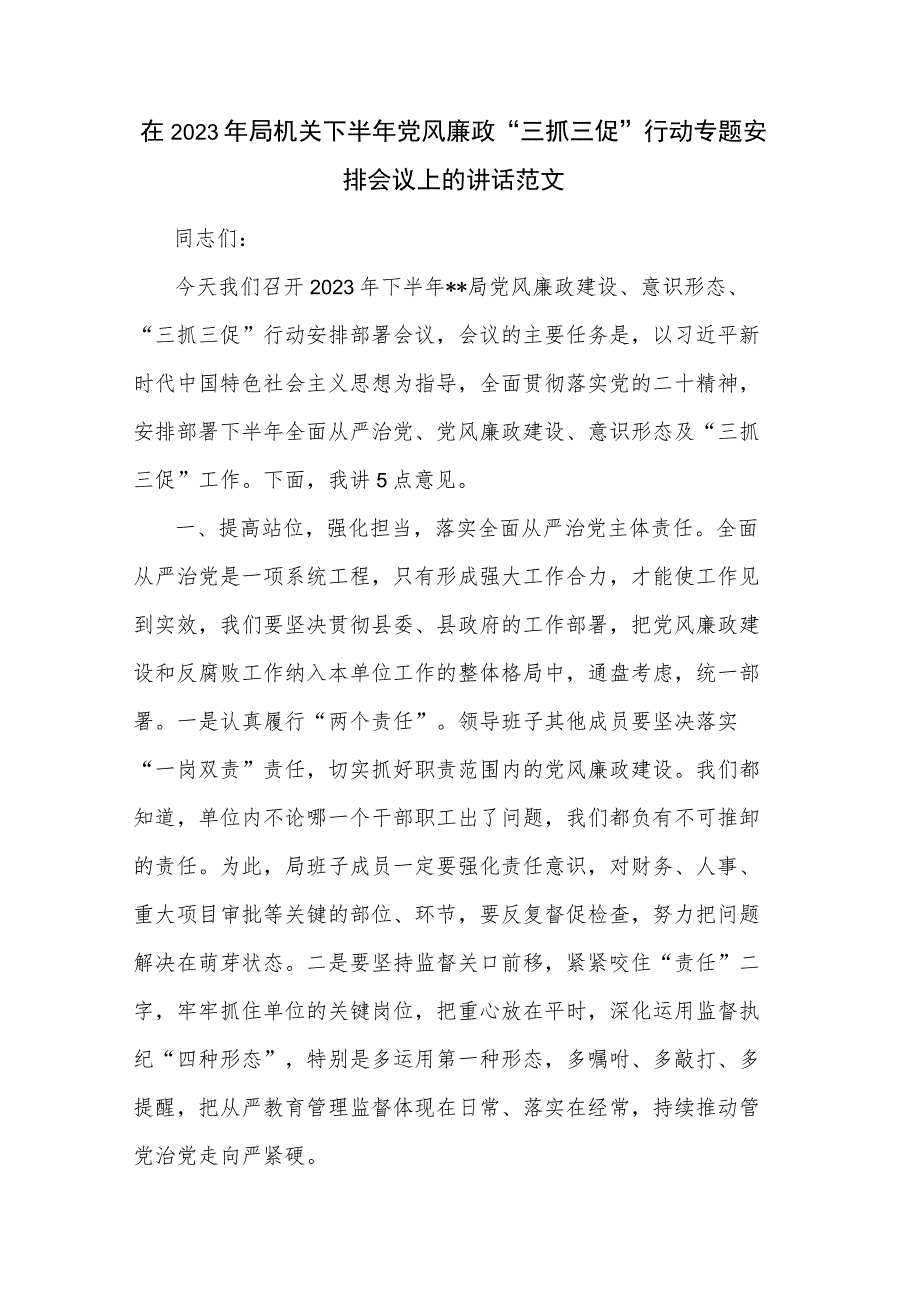 在2023年局机关下半年党风廉政“三抓三促”行动专题安
排会议上的讲话范文
同志们：
今天我们召开2023年下半年**局党风廉政建设、意识形态、
“三抓三促”行动安排部署会议，会议的主要任务是，以习近平新
时代中国特色社会主义思想为指导，全面贯彻落实党的二十精神，
安排部署下半年全面从严治党、党风廉政建设、意识形态及“三抓
三促”工作。下面，我讲5点意见。
一、提高站位，强化担当，落实全面从严治党主体责任。全面
从严治党是一项系统工程，只有形成强大工作合力，才能使工作见
到实效，我们要坚决贯彻县委、县政府的工作部署，把党风廉政建
设和反腐败工作纳入本单位工作的整体格局中，通盘考虑，统一部
署。一是认真履行“两个责任”。领导班子其他成员要坚决落实
“一岗双责”责任，切实抓好职责范围内的党风廉政建设。我们都
知道，单位内不论哪一个干部职工出了问题，我们都负有不可推卸
的责任。为此，局班子成员一定要强化责任意识，对财务、人事、
重大项目审批等关键的部位、环节，要反复督促检查，努力把问题
解决在萌芽状态。二是要坚持监督关口前移，紧紧咬住“责任”二
字，牢牢抓住单位的关键岗位，把重心放在平时，深化运用监督执
纪“四种形态”，特别是多运用第一种形态，多嘱咐、多敲打、多
提醒，把从严教育管理监督体现在日常、落实在经常，持续推动管
党治党走向严紧硬。